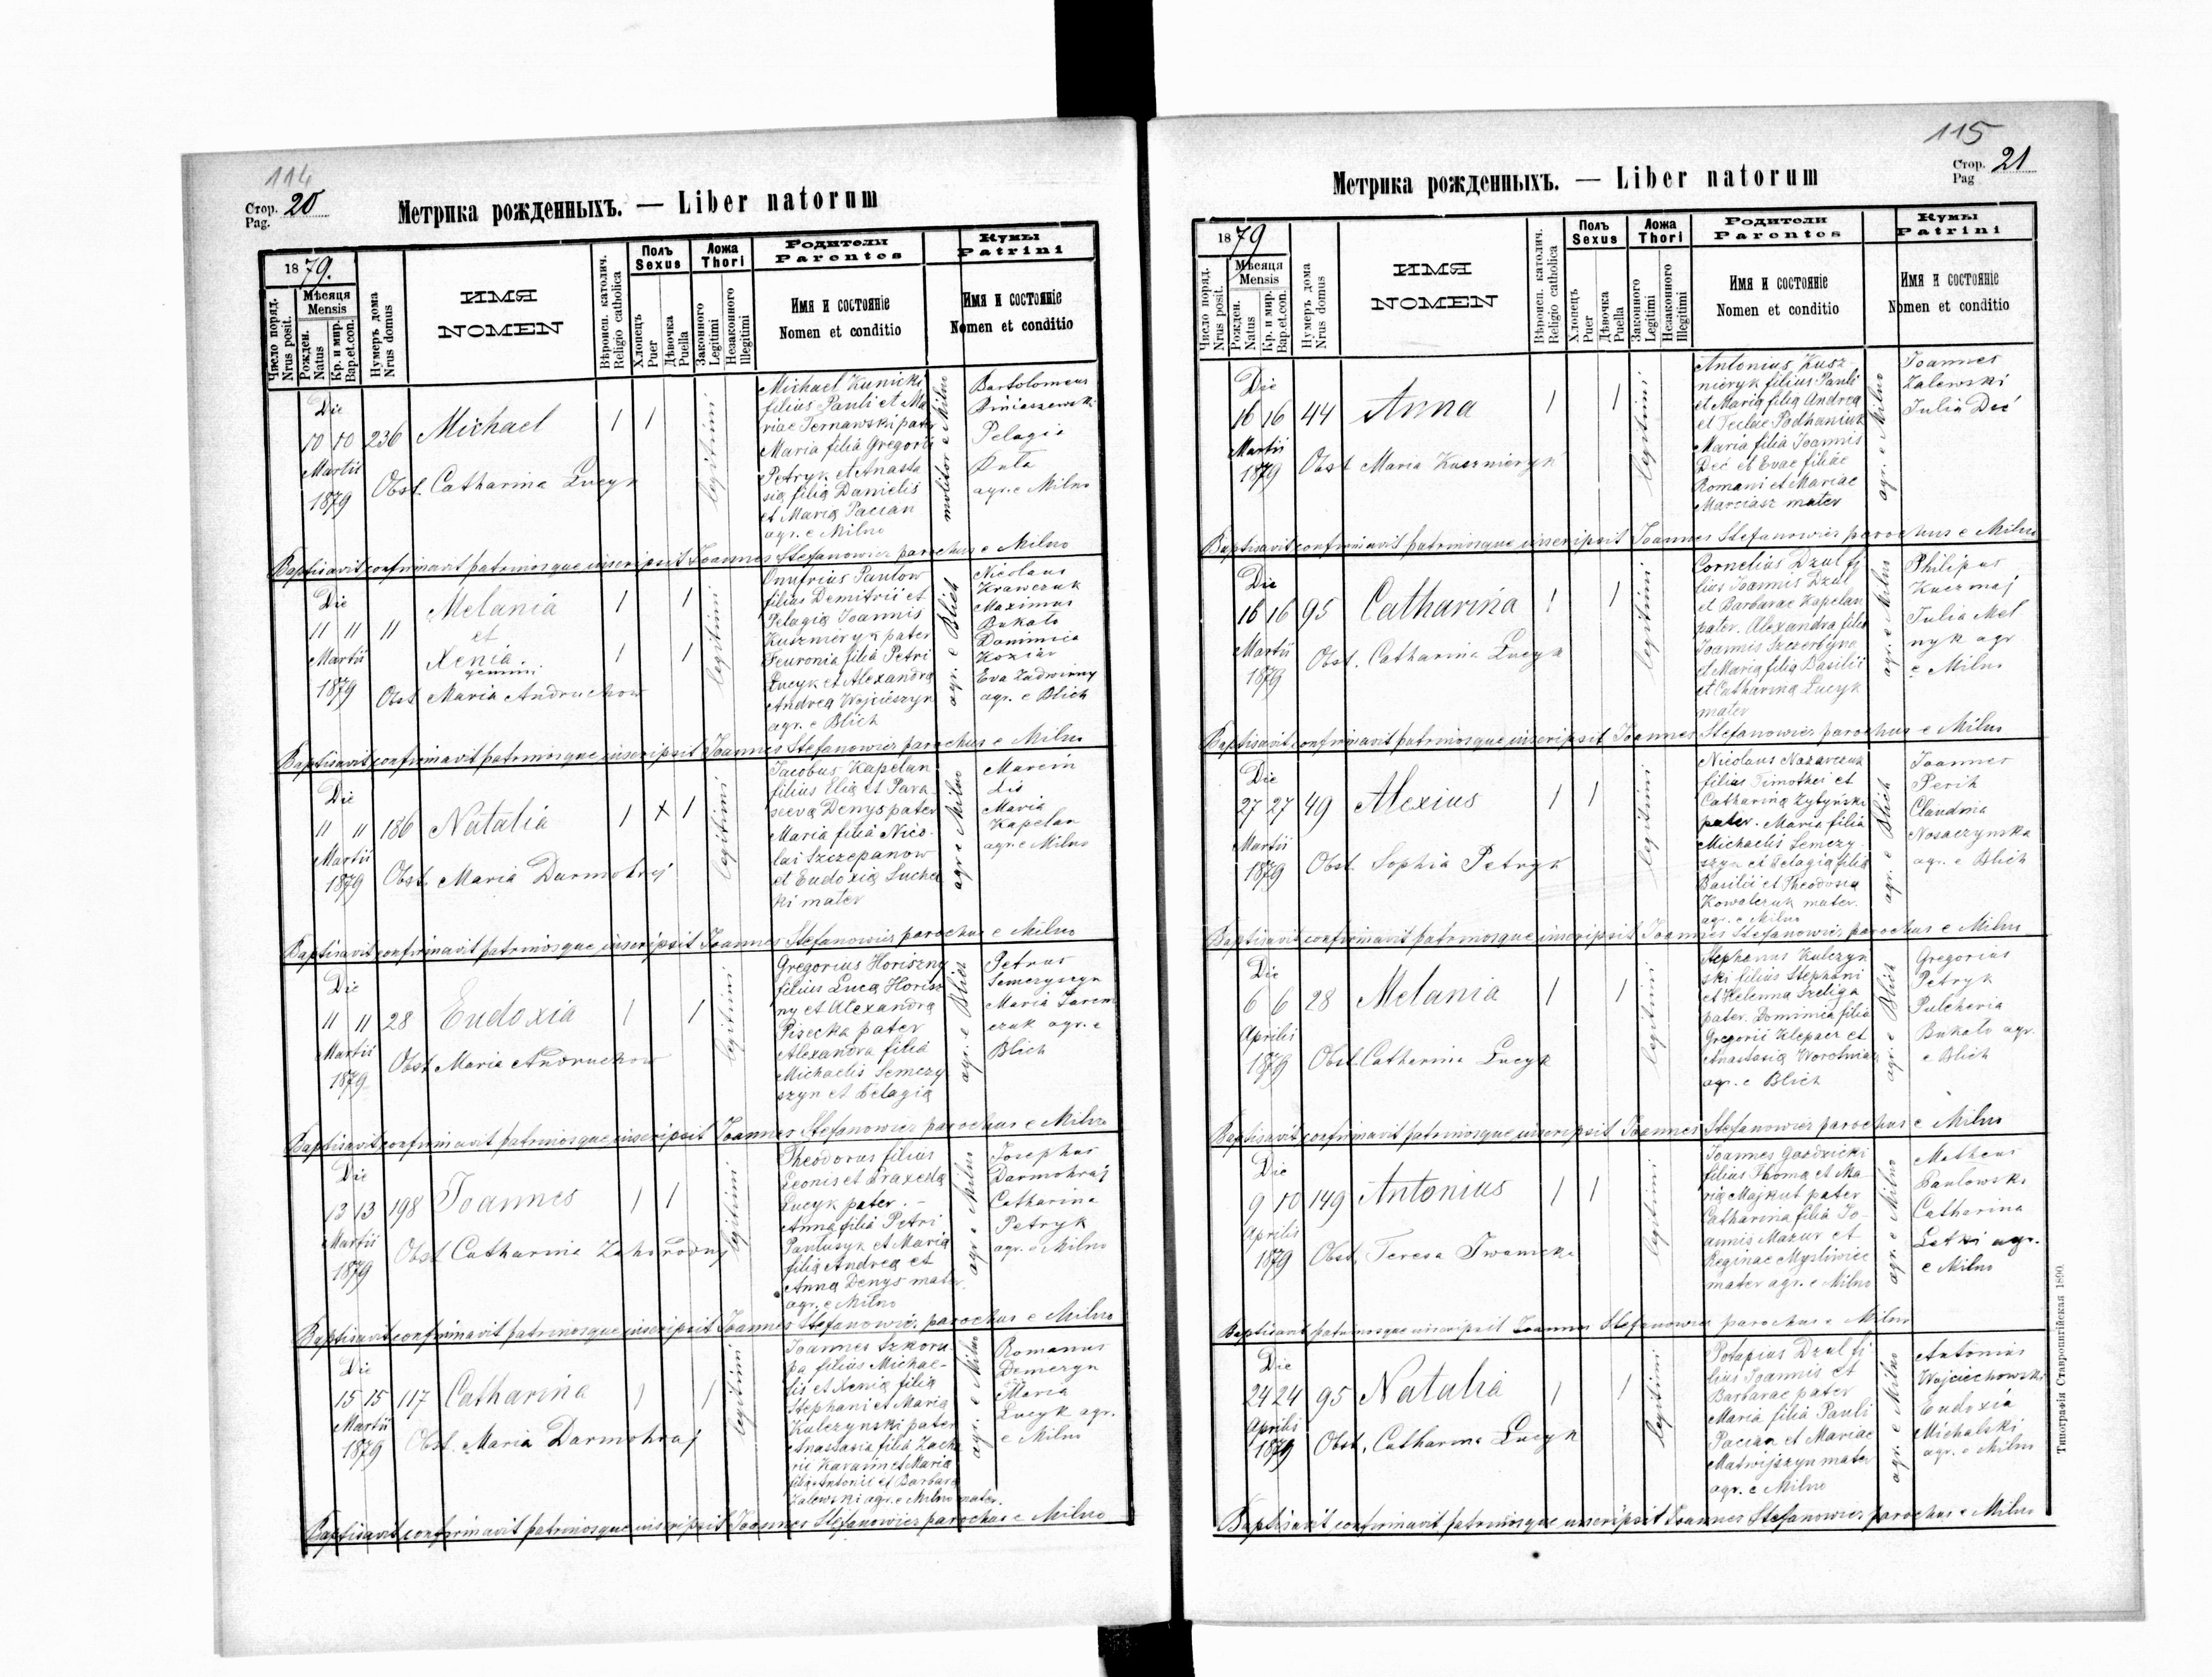 114
Стор. 20
Pag.
Метрика рожденныхъ. — Liber natorum
1879.
Число поряд.
Nrus posit.
Мѣсяця
Mensis
Рожден.
Natus
Кр. и мир.
Bap.et.con.
Нумеръ дома
Nrus domus
ИМЯ
NOMEN
Вѣроисп. католич.
Religio catholica
Полъ
Sexus
Хлопецъ
Puer
Дѣвочка
Puella
Ложа
Thori
Законного
Legitimi
Незаконного
Illegitimi
Родители
Parentes
Имя и состояніе
Nomen et conditio
Кумы
Patrini
Имя и состояніе
Nomen et conditio
Die
10 10 236 Michael 1 1
Martii
1879
Obst. Catharina Lucyk
legitimi
Michael Kunicki
filius Pauli et Ma
riae Ternawski pater
Maria filia Gregorii
Petryk et Anasta
sia filia Danielis
et Maria Pacian
agr. e Milno
molitor e Milno
Bartolomeus
Biniaszewski
Pelagia
Kuta
agr. e Milno
Baptisavit confirmavit patrinosque inscripsit Joannes Stefanowicz parochus e Milno
Die
11 11 11 Melania 1 1
et
Martii Xenia 1 1
gemini
1879 Obst Maria Andruchow
legitimi
Onufrius Pantow
filius Demitrii et
Pelagia Joannis
Kuszmeryk pater
Feuronia filia Petri
Lucyk et Alexandra
Andrea Wojciszyn
agr. e Blich
agr. e Blich
Nicolaus
Krawczuk
Maximus
Bukało
Dominica
Koziar
Eva Zadwirny
agr. e Blich
Baptisavit confirmavit patrinosque inscripsit Joannes Stefanowicz parochus e Milno
Die
11 11 186 Natalia 1 x 1
Martii
1879 Obst. Maria Darmohraj
legitimi
Jacobus Kapelan
filius Elia et Para
sceva Denys pater
Maria filia Nico-
lai Szczepanow
et Eudoxia Suche
ki mater
agr e Milno
Marcin
Lis
Maria
Kapelan
agr. e Milno
Baptisavit confirmavit patrinosque inscripsit Joannes Stefanowicz parochus e Milno
Die
11 11 28 Eudoxia 1 1
Martii
1879 Obst Maria Andruchow
legitimi
Gregorius Horiszny
filius Luca Horisz
ny et Alexandra
Pisecka pater
Alexandra filia
Michaelis Semczy
szyn et Pelagia
agr. e Blich
Petrus
Semczyszyn
Maria Jarem
czuk agr. e
Blich
Baptisavit confirmavit patrinosque inscripsit Joannes Stefanowicz parochus e Milno
Die
13 13 198 Joannes 1 1
Martii
1879
Obst Catharina Zahorodny
legitimi
Theodorus filius
Leonis et Praxeda
Lucyk pater. -
Anna filia Petri
Pantusyk et Maria
filia Andrea et
Anna Denys mater
agr. e Milno
agr e Milno
Josephus
Darmohraj
Catharina
Petryk
agr. e Milno
Baptisavit confirmavit patrinosque inscripsit Joannes Stefanowicz parochus e Milno
Die
15 15 117 Catharina 1 1
Martii
1879 Obst. Maria Darmohraj
legitimi
Joannes Szkoru
pa filius Michae-
lis et Xenia filia
Stephani et Maria
Kulczynski pater
Anastasia filia Zacha
rii Karaim et Maria
filia Antonii et Barbara
Zalewski agr. e Milno mater.
agr. e Milno
Romanus
Demczyn
Maria
Lucyk agr.
e Milno
Baptisavit confirmavit patrinosque inscripsit Joannes Stefanowicz parochus e Milno
115
Стор. 21
Pag
Метрика рожденныхъ. — Liber natorum
1879
Число поряд.
Nrus posit.
Мѣсяця
Mensis
Рожден.
Natus
Кр. и мир.
Bap.et.con.
Нумеръ дома
Nrus domus
ИМЯ
NOMEN
Вѣроисп. католич.
Religio catholica
Полъ
Sexus
Хлопецъ
Puer
Дѣвочка
Puella
Ложа
Thori
Законного
Legitimi
Незаконного
Illegitimi
Родители
Parentes
Имя и состояніе
Nomen et conditio
Кумы
Patrini
Имя и состояніе
Nomen et conditio
Die
16 16 44 Anna 1 1
Martii
1879 Obst Maria Kusznieryk
legitimi
Antonius Kusz-
nieryk filius Pauli
et Maria filia Andrea
et Teclae Podhaniuk
Maria filia Joannis
Deć et Evae filiae
Romani et Mariae
Marciasz mater
agr. e Milno
Joannes
Zalewski
Julia Deć
Baptisavit confirmavit patrinosque inscripsit Joannes Stefanowicz parochus e Milno
Die
16 16 95 Catharina 1 1
Martii
1879
Obst. Catharina Lucyk
legitimi
Cornelius Dzul fi
lius Joannis Dzul
et Barbarae Kapelan
pater. Alexandra filia
Joannis Szczerbyna
et Maria filia Basilii
et Catharina Lucyk
mater
agr. e Milno
Philipus
Kuczmaj
Julia Mel
nyk agr
e Milno
Baptisavit confirmavit patrinosque inscripsit Joannes Stefanowicz parochus e Milno
Die
27 27 49 Alexius 1 1
Martii
1879 Obst. Sophia Petryk
legitimi
Nicolaus Nazarczuk
filius Timothei et
Catharina Zybyński
pater. Maria filia
Michaelis Semczy-
szyn et Pelagia filia
Basilii et Theodosia
Kowalczuk mater.
agr. e Milno
agr. e Blich
Joannes
Perih
Claudina
Nosaczynska
agr. e Blich
Baptisavit confirmavit patrinosque inscripsit Joannes Stefanowicz parochus e Milno
Die
6 6 28 Melania 1 1
Aprilis
1879 Obst. Catherina Lucyk
legitimi
Stephanus Kulczyn
ski filius Stephani
et Helenna Szeliga
pater. Dominica filia
Gregorii Klepacz et
Anastasia Worobnia
agr. e Blich
agr. e Blich
Gregorius
Petryk
Pulcheria
Bukało agr.
e Blich
Baptisavit confirmavit patrinosque inscripsit Joannes Stefanowicz parochus e Milno
Die
9 10 149 Antonius 1 1
Aprilis
1879 Obst. Teresa Iwanicka
legitimi
Joannes Gozdzicki
filius Thoma et Ma-
ria Majkut pater
Catharina filia Jo-
annis Mazur et
Reginae Mysliwiec
mater agr. e Milno
agr. e Milno
Matheus
Pawlowski
Catherina
Letki agr.
e Milno
Baptisavit patrinosque inscripsit Joannes Stefanowicz parochus e Milno
Die
24 24 95 Natalia 1 1
Aprilis
1879 Obst. Catharina Lucyk
legitimi
Potapius Dzul fi
lius Joannis et
Barbarae pater
Maria filia Pauli
Pacian et Mariae
Matwijszyn mater
agr. e Milno
agr. e Milno
Antonius
Wojciechowski
Eudoxia
Michalski
agr. e Milno
Baptisavit confirmavit patrinosque inscripsit Joannes Stefanowicz parochus e Milno
Типографія Ставропигійская 1890.